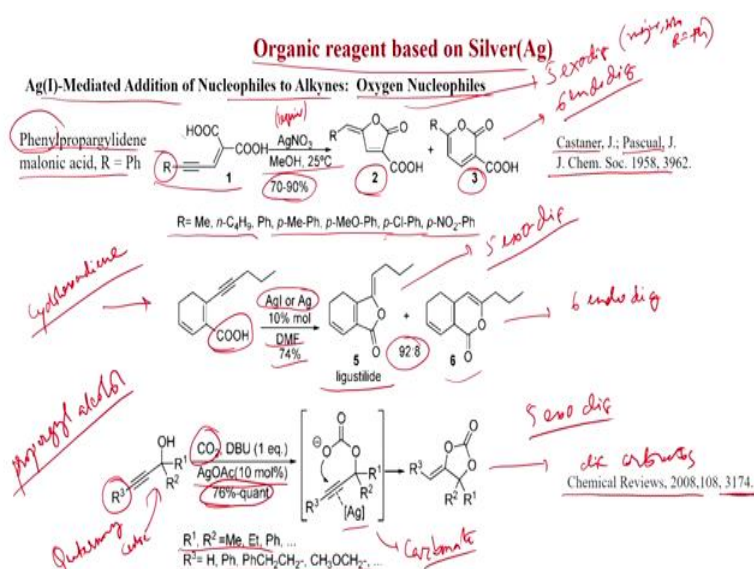 Organic reagent based on Silver(Ag)
Ag(I)-Mediated Addition of Nucleophiles to Alkynes: Oxygen Nucleophiles
5 exo dig
R=Ph)
6 endo dig
Phenylpropargylidene
malonic acid, R = Ph
HOOC
COOH
R
1
AgNO3
MeOH, 25ºC
70-90%
R
O
O
COOH
2
+
R
O
O
COOH
3
Castaner, J.; Pascual, J.
J. Chem. Soc. 1958, 3962.
R= Me, n-C4H9, Ph, p-Me-Ph, p-MeO-Ph, p-Cl-Ph, p-NO2-Ph
5 exo-dig
Cyclohexadiene
COOH
AgI or Ag
10% mol
DMF
74%
O
O
5
ligustilide
+
92:8
O
O
6
6 endo dig
propargyl alcohol
OH
R1
R2
R3
CO2, DBU (1 eq.)
AgOAc(10 mol%)
76%-quant
O
⊖O
O
R1
R2
R3
[Ag]
O
O
O
R3
R2 R1
5 exo dig
carbonates
Chemical Reviews, 2008,108, 3174.
Quaternary
Carbonate
R1, R2 =Me, Et, Ph, ...
R3= H, Ph, PhCH2CH2-, CH3OCH2-, ...